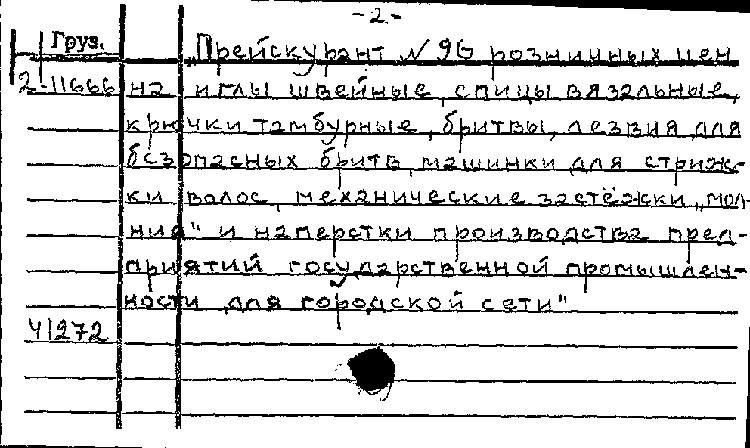 -2.-
Груз. „Прейскурант № 96 розничных цен
2-11666 на иглы швейные, спицы вязальные,
крючки тамбурные, бритвы, лезвия для
безопасных бритв, машинки для стриж-
ки волос, механические застёжки „мол-
ния" и наперстки производства пред-
приятий государственной промышлен-
ности для городской сети"
41272